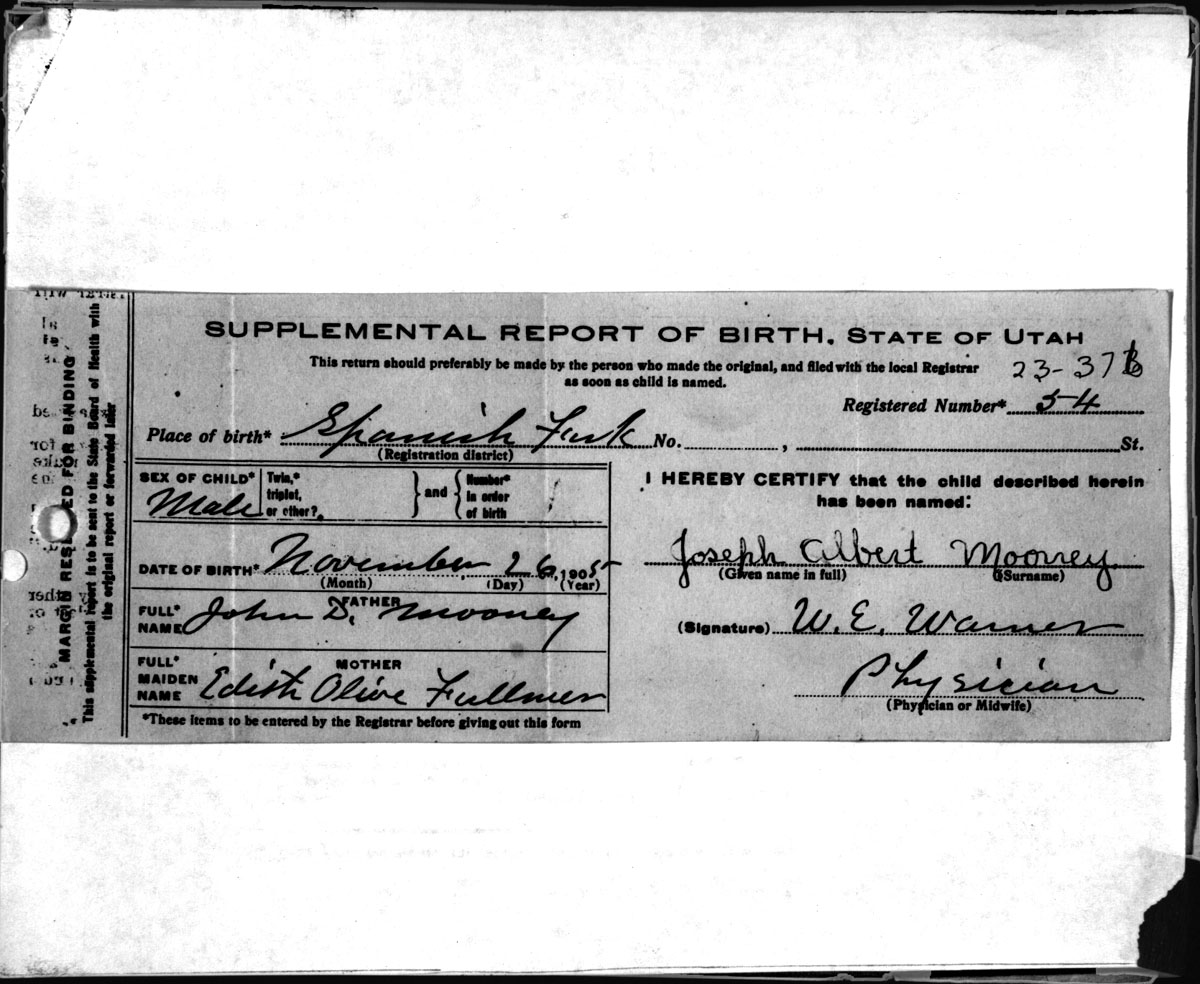 SUPPLEMENTAL REPORT OF BIRTH. STATE OF UTAH
This return should preferably be made by the person who made the original, and filed with the local Registrar
as soon as child is named.
23-37
Registered Number* 54
Place of birth* Spanish Fork No. , St.
(Registration district)
SEX OF CHILD* Male
Twin,* triplet, or other?
and
Number* in order of birth
DATE OF BIRTH* November 26, 1905
(Month) (Day) (Year)
FATHER
FULL* NAME John D. Mooney
MOTHER
FULL* MAIDEN NAME Edith Olive Fullmer
*These items to be entered by the Registrar before giving out this form
I HEREBY CERTIFY that the child described herein
has been named:
Joseph Albert Mooney
(Given name in full) (Surname)
(Signature) W. E. Warner
Physician
(Physician or Midwife)
MARGIN RESERVED FOR BINDING
This supplemental report is to be sent to the State Board of Health with
the original report or forwarded later